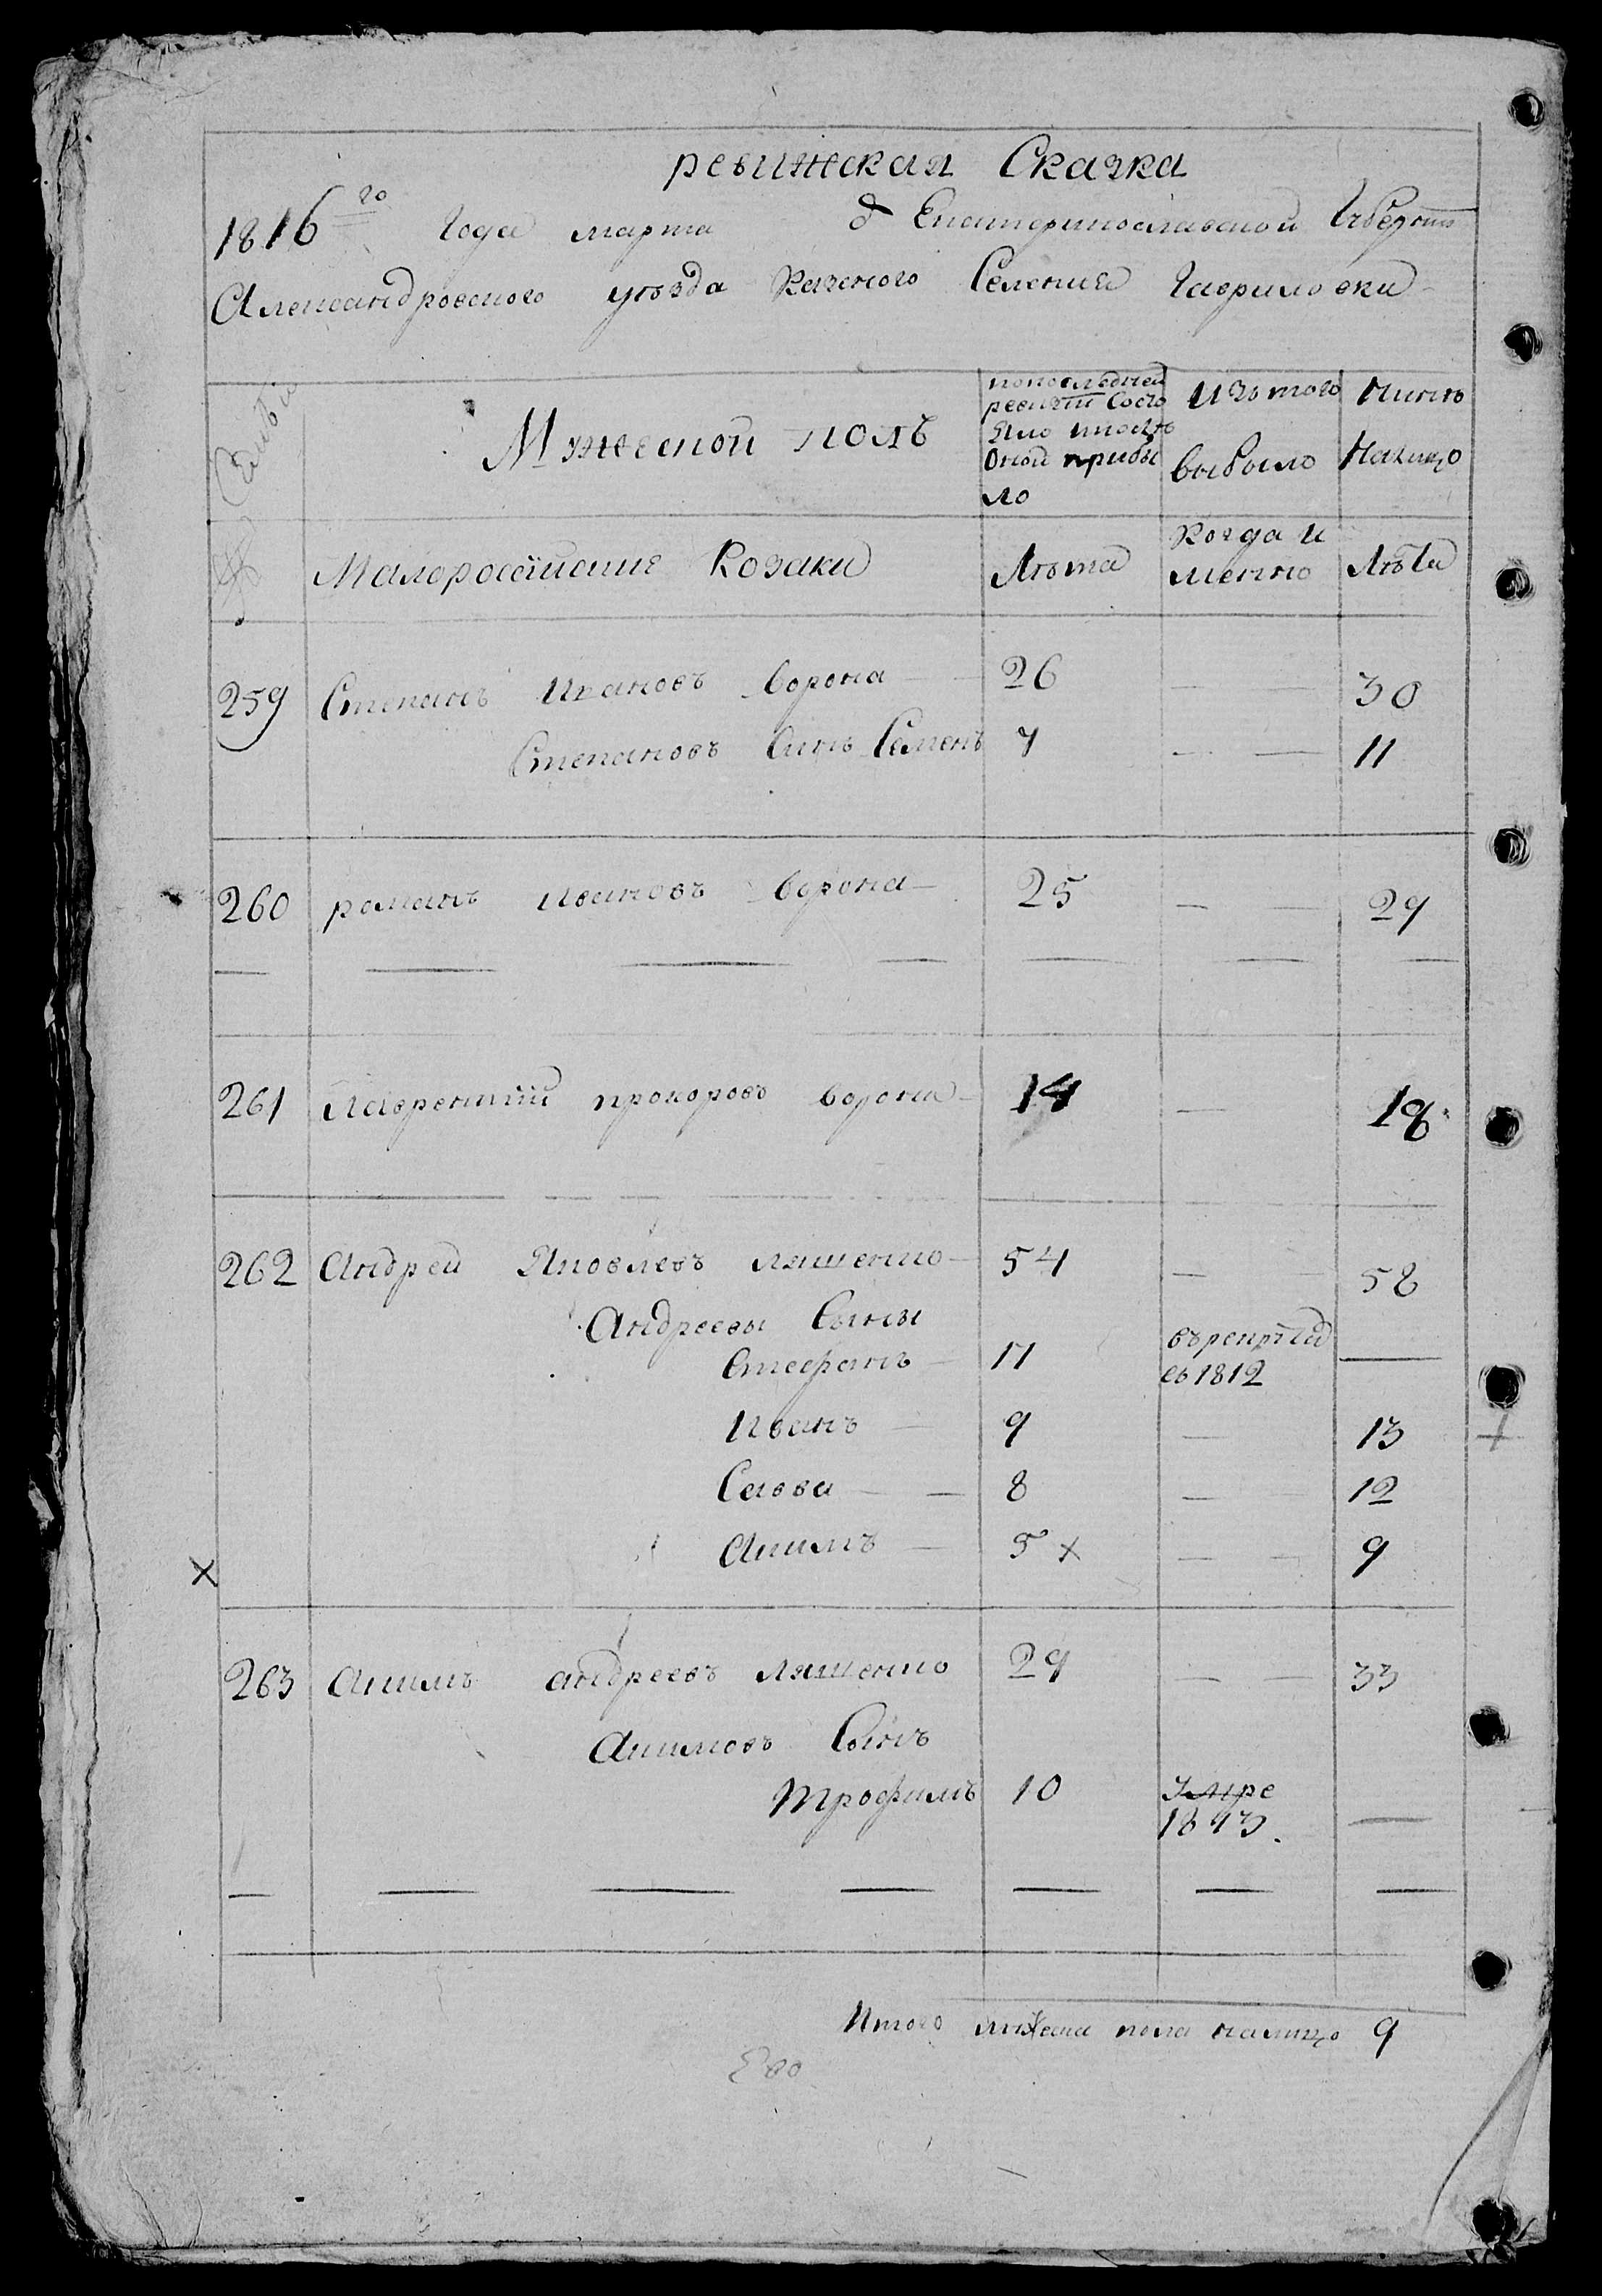 ревижская Сказка
1816го Года марта д Екатеринославской Губернии
Александровского уѣзда Казеного Селения Гавриловки
Мужеской полъ
попоследней ревизіи Состояло ипослѣ Оной прибыло
Изъ того выбыло
Нынѣ Налицо
Малоросийские Козаки
Лѣта
Когда и менно
Лѣта
259 Степанъ Ивановъ Ворона — 26 — — 30
Степановъ Синъ Семенъ 7 — — 11
260 романъ ивановъ Ворона — 25 — — 29
261 Лаврентий прохоровъ ворона — 14 — 18
262 Андрей Яковлевъ ляшенко — 54 — 58
Андреевы Сыны
Стефанъ — 17 въ рекрутѣ въ 1812 —
Иванъ — 9 — 13
Савва — — 8 — 12
Акимъ — 5 x — 9
x
263 Акимъ андреевъ ляшенко 29 — 33
Акимовъ Сынъ
Трофимъ 10 Умре 1813. —
Итого мужеска пола налицо 9